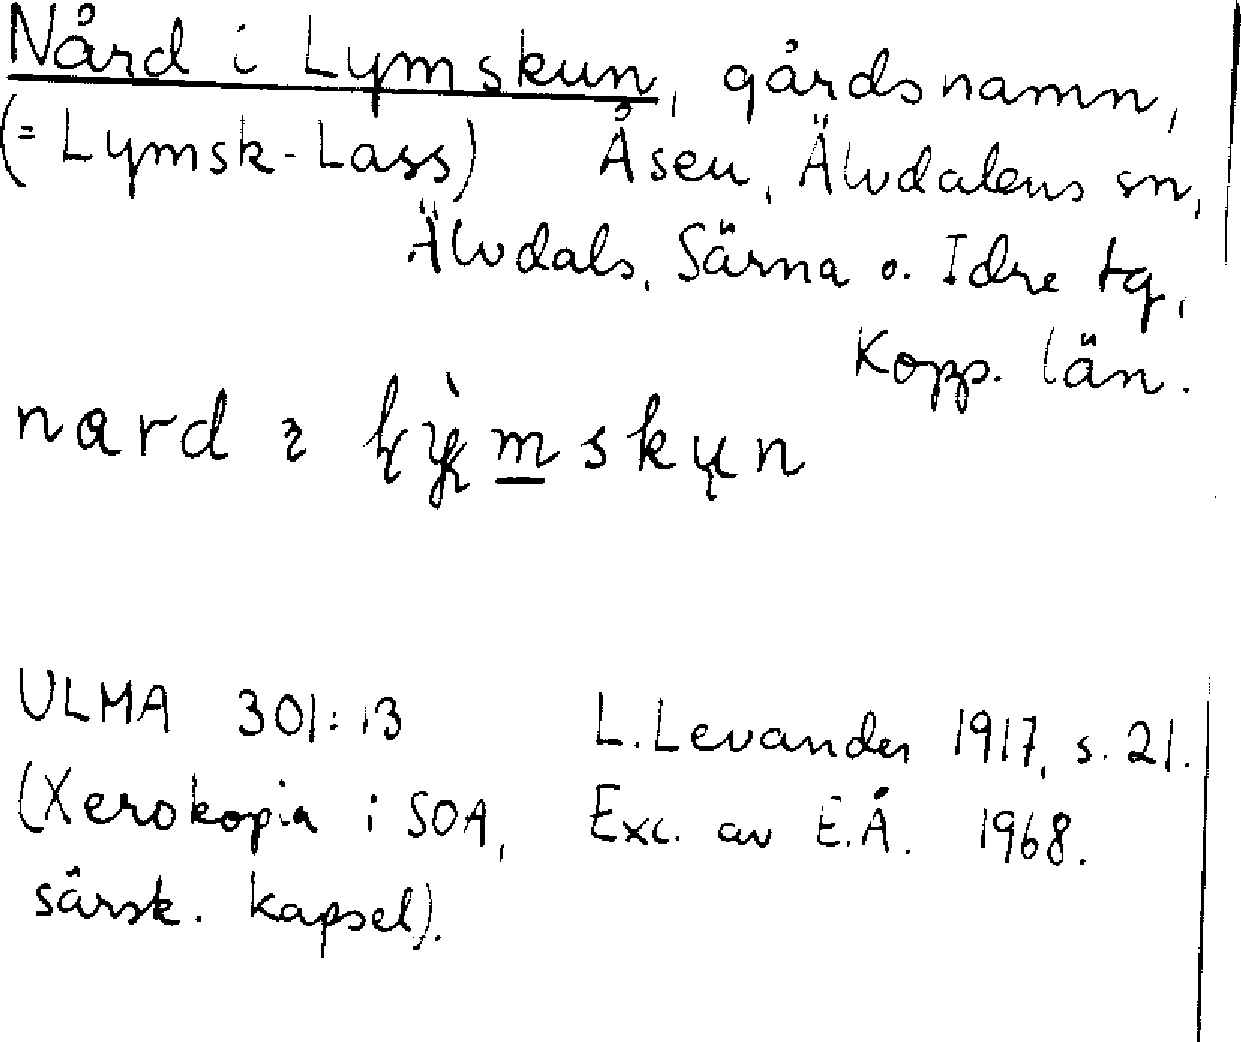 Nård i Lymskun, gårdsnamn,
(= Lymsk-Lass) Åsen, Älvdalens sn,
Älvdals, Särna o. Idre tg,
Kopp. län.
nard ı lymskun
ULMA 301:13 L. Levander 1917, s. 21.
(Xerokopia i SOA, Exc. av E.Å. 1968.
särsk. kapsel).